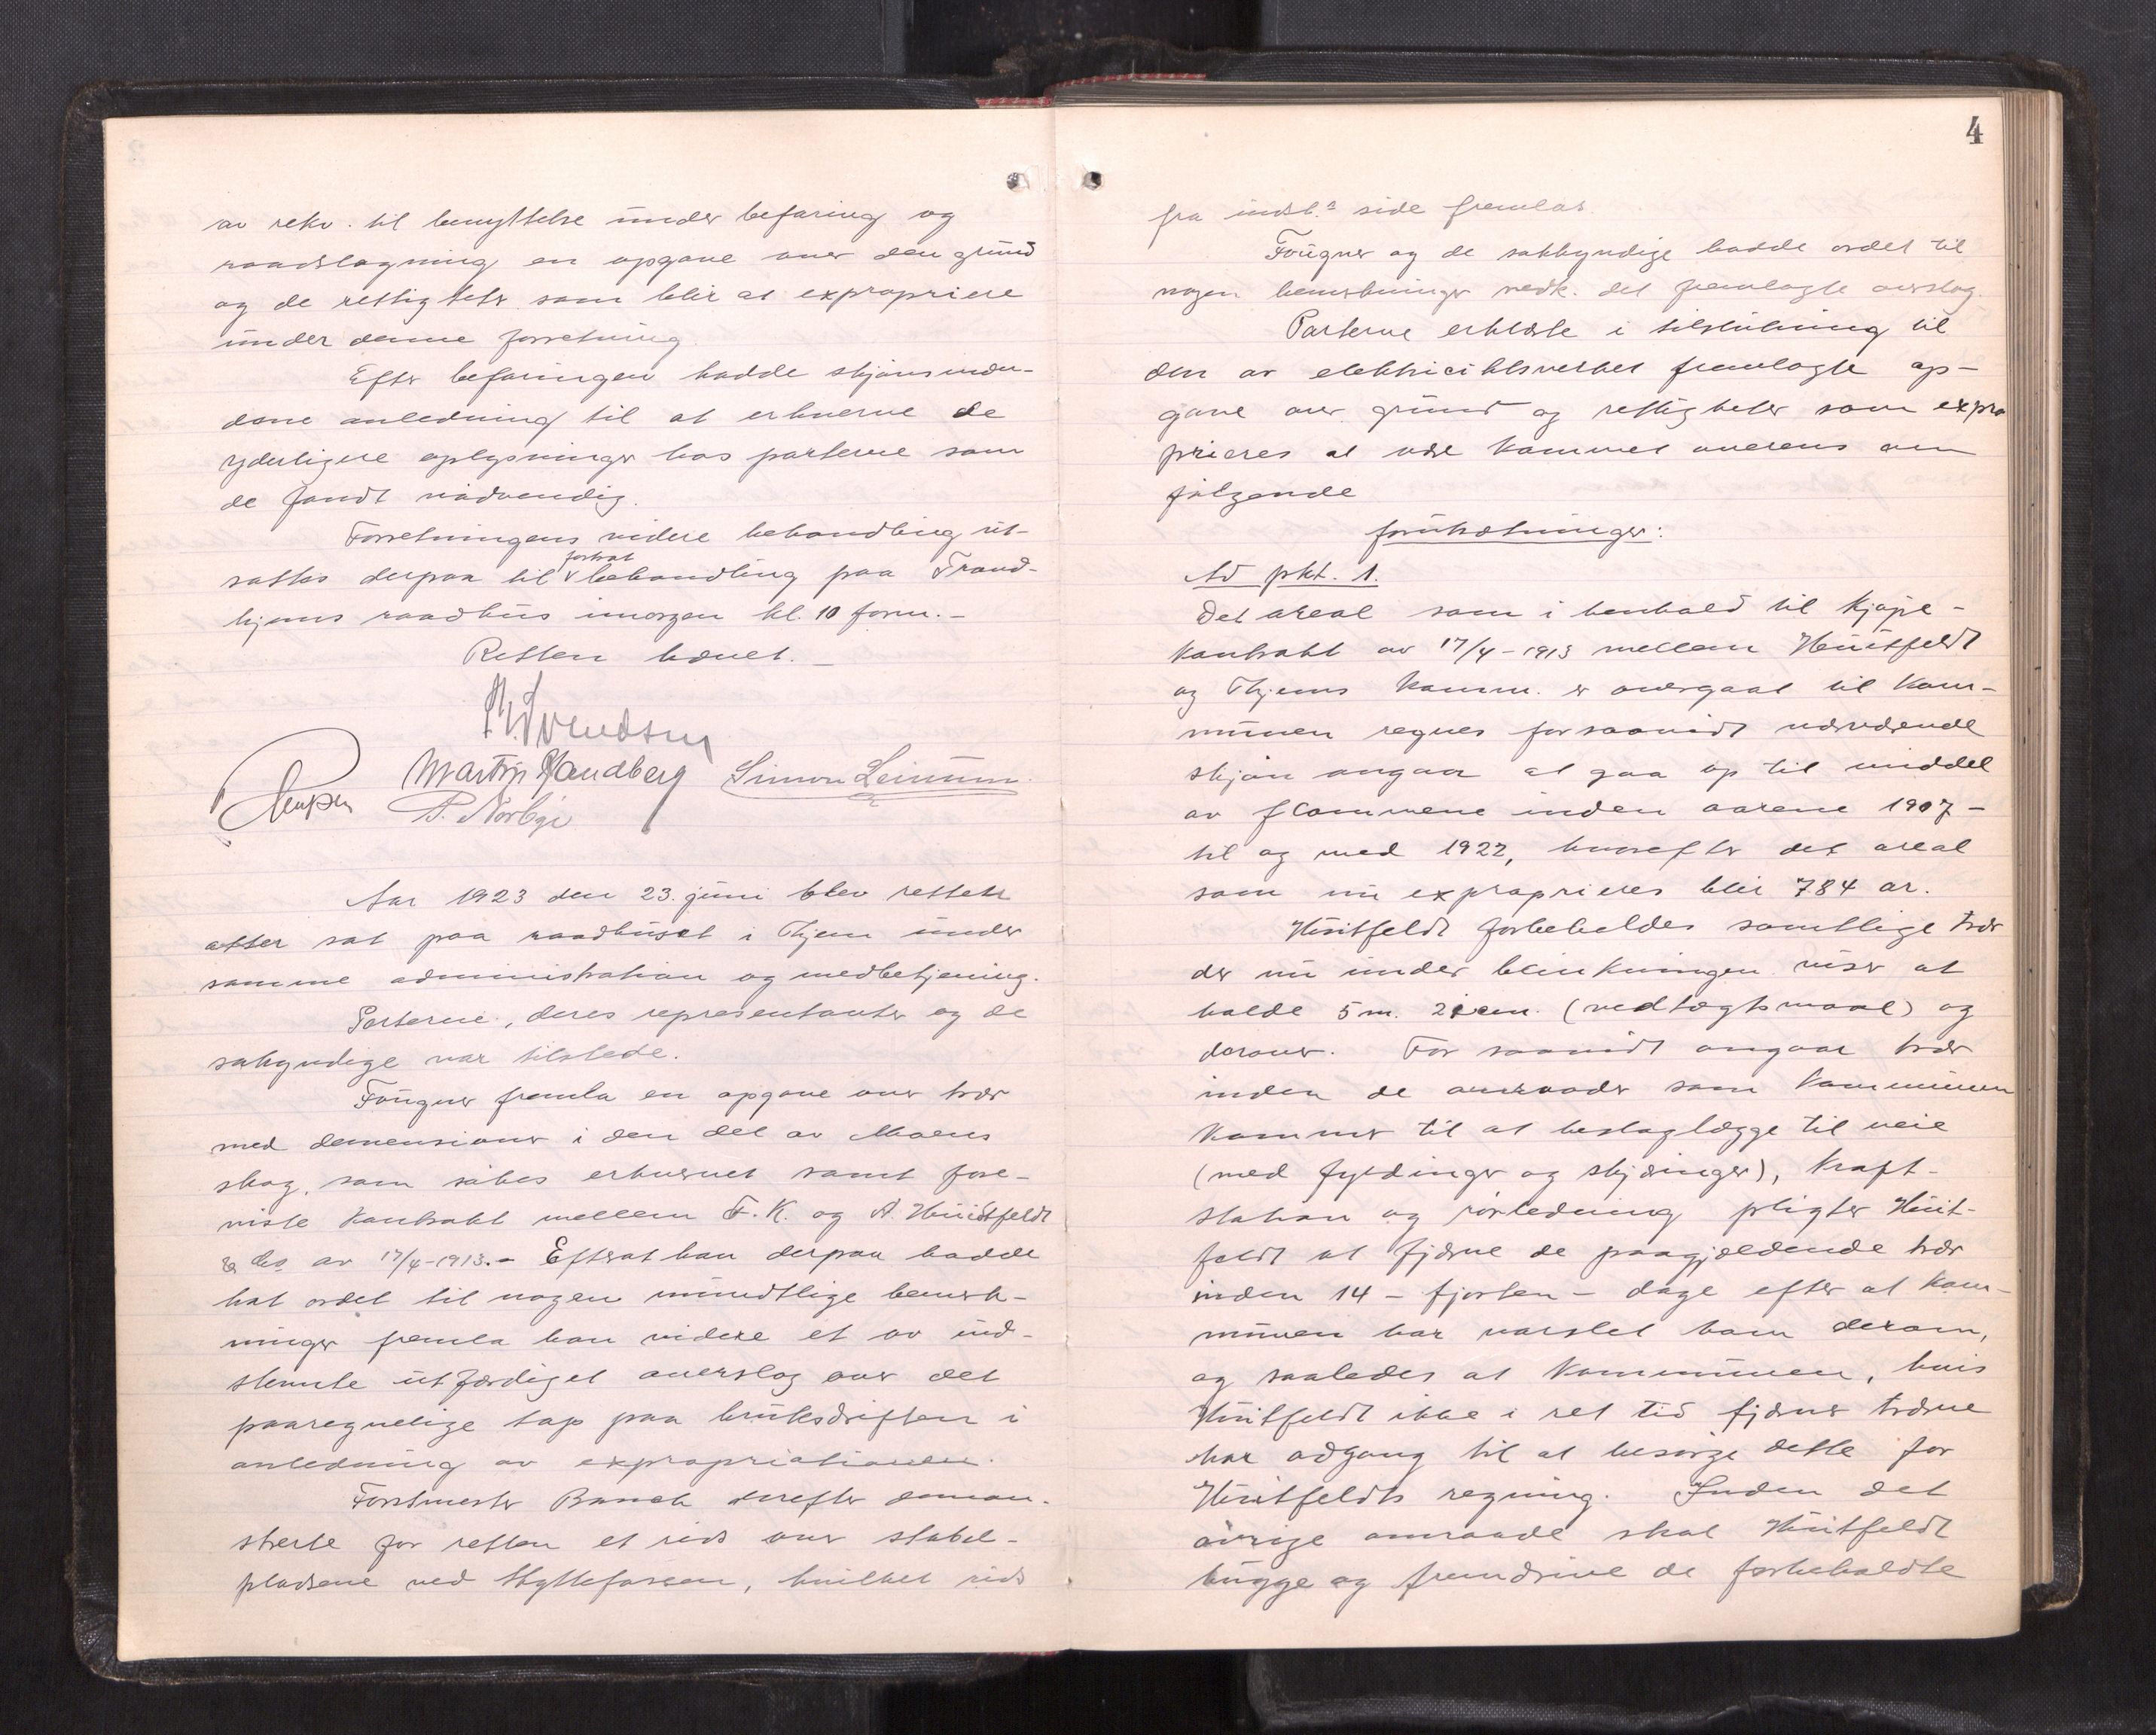 av rekv. til benyttelse under befaring og
raadslagning en opgave over den grund
og de rettigheter som blir at expropriere
under denne forretning.
Efter befaringen hadde skjønsmæn-
dene anledning til at erhverve de
yderligere oplysninger hos parterne som
de fandt nødvendig.
Forretningens videre behandling ut-
sattes derpaa til fortsat behandling paa Trond-
hjems raadhus imorgen kl. 10 form. -
Retten hævet. -
Svendsen
Martin Sandberg Simon Leinum
P. Norbye
Aar 1923 den 23. juni blev retten
atter sat paa raadhuset i Thjem under
samme administration og medbetjening.
Parterne, deres representanter og de
sakyndige var tilstede.
Fougner fremla en opgave over trær
med demensioner i den del av Moens
skog, som søkes erhvervet samt fore-
viste kontrakt mellem T.K. og A. Huitfeldt
& Co av 17/4-1913. - Efterat han derpaa hadde
hat ordet til nogen mundtlige bemerk-
ninger fremla han videre et av ind-
stevnte utfærdiget overslag over det
paaregnelige tap paa bruksdriften i
anledning av expropriationen.
Forstmester Banck derefter demon-
sterte for retten et rids over stabel-
pladsene ved Hyttefossen, hvilket rids
4
fra indst.s side fremlas.
Fougner og de sakkyndige hadde ordet til
nogen bemerkninger vedk. det fremlagte overslag.
Parterne erklærte i tilslutning til
den av elektricitetsverket fremlagte op-
gave over grund og rettigheter som expro
prieres at være kommet overens om
følgende
forutsætninger:
Ad pkt. 1.
Det areal som i henhold til kjøpe-
kontrakt av 17/4-1913 mellem Huitfeldt
og Thjems komm. er overgaat til kom-
munen regnes forsaavidt nærværende
skjøn angaar at gaa op til middel
av flommene inden aarene 1907 -
til og med 1922, hvorefter det areal
som nu exproprieres blir 784 ar.
Huitfeldt forbeholdes samtlige trær
der nu under blinkningen viser at
holde 5 m. 21 cm. (vedtægtsmaal) og
derover. For saavidt angaar trær
inden de omraader som kommunen
kommer til at beslaglægge til veie
(med fyldinger og skjæringer), kraft-
station og rørledning pligter Huit-
feldt at fjerne de paagjældende trær
inden 14 - fjorten - dage efter at kom-
munen har varslet ham derom,
og saaledes at kommunen, hvis
Huitfeldt ikke i ret tid fjerner trærne
har adgang til at besørge dette for
Huitfeldts regning. Inden det
øvrige omraade skal Huitfeldt
hugge og fremdrive de forbeholdte